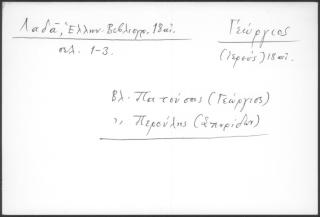 Λαδᾶ, Ἑλλην. Βιβλιογρ. 18 αἰ.
σελ. 1-3.
Γεώργιος
(ἱερεὺς) 18 αἰ.
Βλ. Πατούσας (Γεώργιος)
,, Περούλης (Σπυρίδων)